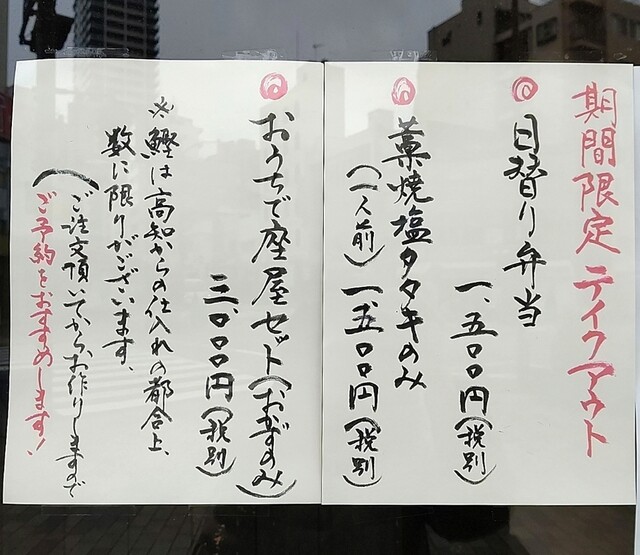 期間限定テイクアウト
日替り弁当
一、五〇〇円(税別)
藁焼塩タタキのみ
(一人前)一、五〇〇円(税別)
おうちで座屋セット(おかずのみ)
三、〇〇〇円(税別)
※鰹は高知からの仕入れの都合上、
数に限りがございます。
(ご注文頂いてからお作りしますので
ご予約をおすすめします!